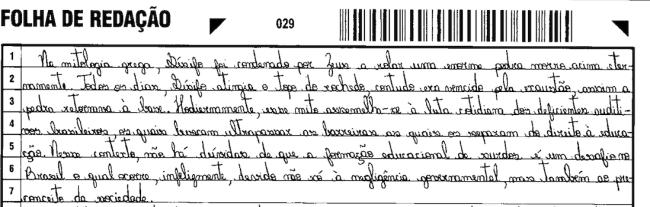 FOLHA DE REDAÇÃO
029
1 Na mitologia grega, Sísifo foi condenado por Zeus a rolar uma enorme pedra morro acima eter-
2 namente. Todos os dias, Sísifo atingia o topo do rochedo, contudo era vencido pela exaustão, assim a
3 pedra retornava à base. Hodiernamente, esse mito assemelha-se à luta cotidiana dos deficientes auditi-
4 vos brasileiros, os quais buscam ultrapassar as barreiras as quais os separam do direito à educa-
5 ção. Nesse contexto, não há dúvidas de que a formação educacional de surdos é um desafio no
6 Brasil o qual ocorre, infelizmente, devido não só à negligência governamental, mas também ao pre-
7 conceito da sociedade.